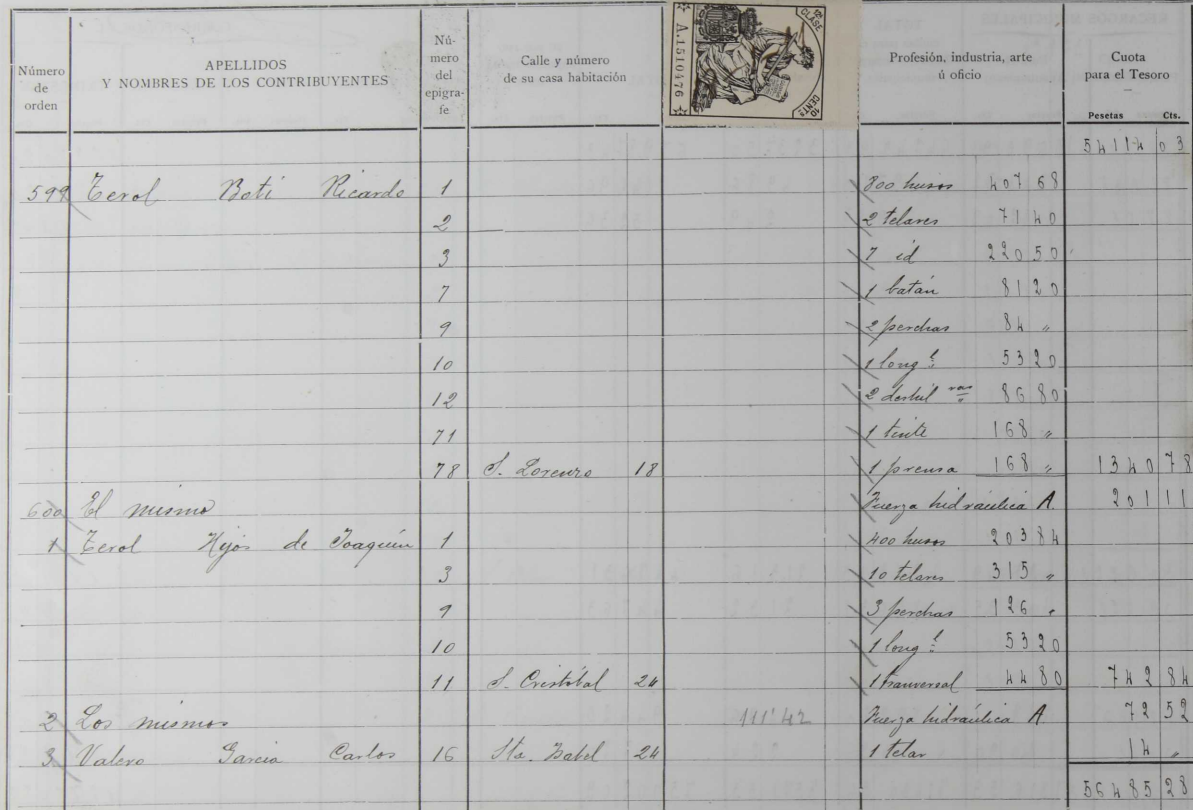 12ª CLASE
A.1510476
10 CENTs
Número de orden
APELLIDOS Y NOMBRES DE LOS CONTRIBUYENTES
Número del epigrafe
Calle y número de su casa habitación
Profesión, industria, arte ú oficio
Cuota para el Tesoro
Pesetas Cts.
54114 03
599 Terol Boti Ricardo 1 800 husos 407 68
2 2 telares 71 40
3 7 id 220 50
7 1 batán 81 20
9 2 perchas 84 "
10 1 long l 53 20
12 2 deshil ras 86 80
71 1 tinte 168 "
78 S. Lorenzo 18 1 prensa 168 " 1340 78
600 El mismo Fuerza hidráulica A. 201 11
1 Terol Hijos de Joaquín 1 400 husos 203 84
3 10 telares 315 "
9 3 perchas 126 "
10 1 long l 53 20
11 S. Cristóbal 24 1 tranversal 44 80 742 84
2 Los mismos 111'42 Fuerza hidráulica A 72 52
3 Valero Garcia Carlos 16 Sta. Isabel 24 1 telar 14 "
56485 28